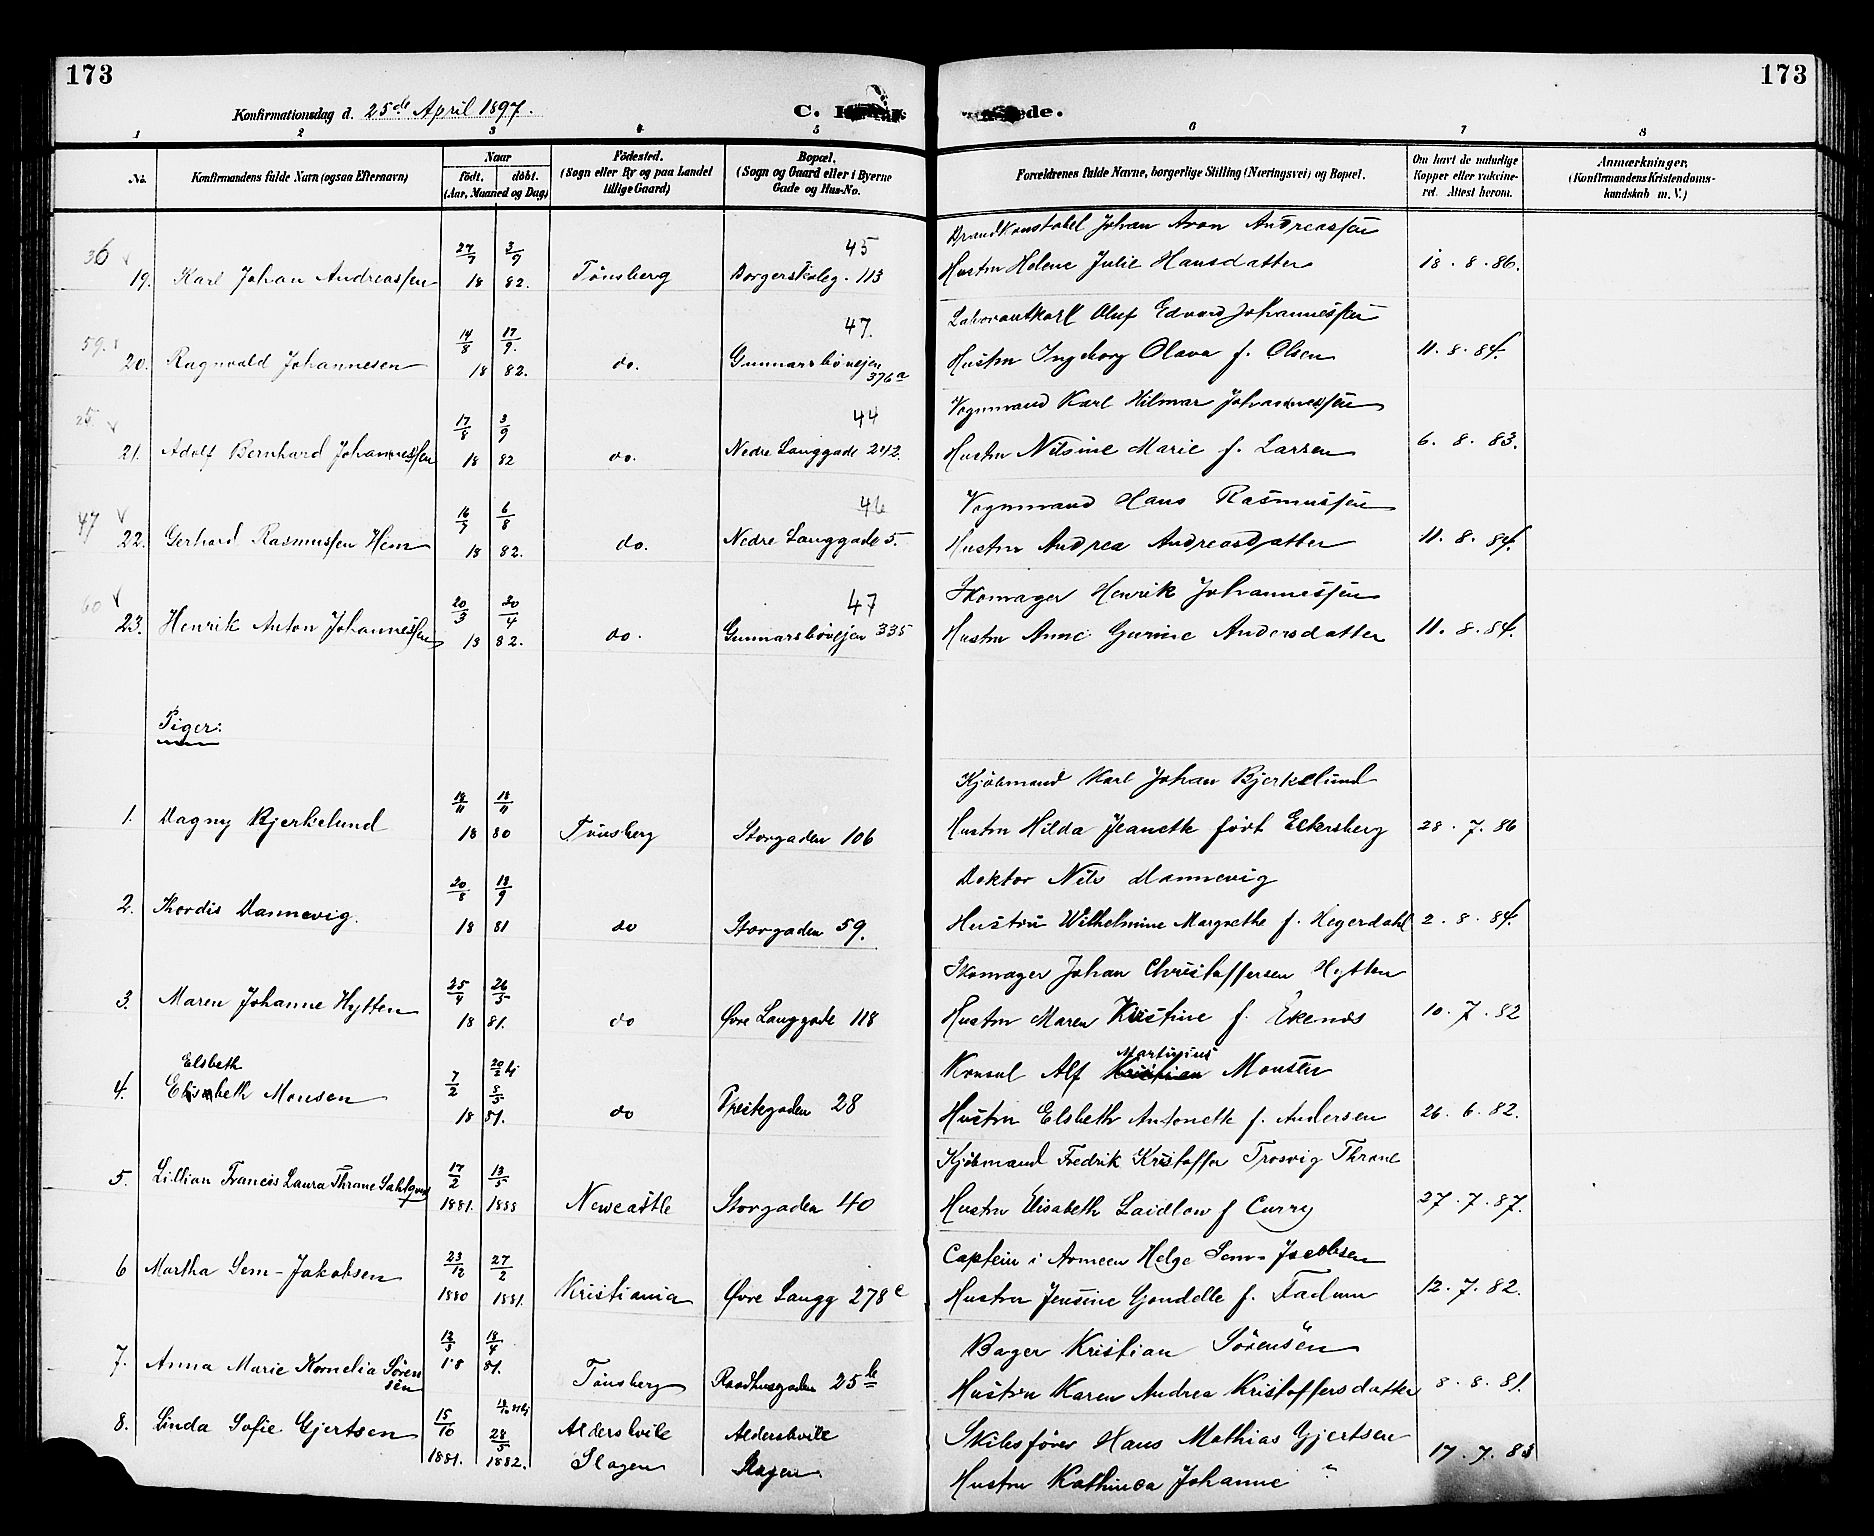 173
173
Konfirmationsdag d. 25de April 1897.
C.
de.
1 2 3 4 5 6 7 8
No.
Konfirmandens fulde Navn (ogsaa Efternavn)
Naar
födt. döbt.
(Aar, Maaned og Dag)
Födested.
(Sogn eller By og paa Landet
tillige Gaard)
Bopæl.
(Sogn og Gaard eller i Byerne
Gade og Hus-No.
Forældrenes fulde Navne, borgerlige Stilling (Næringsvei) og Bopæl.
Om havt de naturlige
Kopper eller vakcine-
ret. Attest herom.
Anmærkninger,
(Konfirmandens Kristendoms-
kundskab m. V.)
36 45 Brandkonstabel Johan Aron Andreassen
19. Karl Johan Andreassen 27/7 3/9 18 82. Tönsberg Borgerskoleg. 113 Hustru Helene Julie Hansdatter 18. 8. 86.
59. 47. Laborantkarl Oluf Edvard Johannessen
20. Ragnvald Johannesen 14/8 17/9. 18 82. do. Gunnarsbövejen 376a Hustru Ingeborg Olava f. Olsen 11. 8. 84.
25 44 Vognmand Karl Hilmar Johannessen
21. Adolf Bernhard Johannessen 17/8 3/9 18 82 do. Nedre Langgade 242. Hustru Nilsine Marie f. Larsen 6. 8. 83.
47 46 Vognmand Hans Rasmussen
22. Gerhard Rasmussen Hem 16/7 6/8 18 82. do. Nedre Langgade 5. Hustru Andrea Andreasdatter 11. 8. 84.
60 47 Skomager Henrik Johannessen
23. Henrik Anton Johannessen 20/3 30/4 18 82. do. Gunnarsbövejen 335 Hustru Anne Gurine Andersdatter 11. 8. 84.
Piger:
Kjöbmand Karl Johan Bjerkelund
1. Dagny Bjerkelund 18 80 Tönsberg Storgaden 106 Hustru Hilda Jeanette født Eckersberg 28. 7. 86
Doktor Nils Dannevig
2. Thordis Dannevig. 20/8 18/9 18 81 do Storgaden 59. Hustru Wilhelmine Margrethe f. Hegerdahl 2. 8. 84.
Skomager Johan Christoffersen Hytten
3. Maren Johanne Hytten 25/4 26/5 18 81. do Øvre Langgade 118 Hustru Maren Kristine f. Ekenæs 10. 7. 82
Elsbeth Martinius
Konsul Alf Kristian Monsen
4. Elisabeth Monsen 7/2 18 81. do Prestegaden 28 Hustru Elsbeth Antonette f. Andersen 26. 6. 82.
Kjöbmand Fredrik Kristoffer Trosvig Thrane
5. Lillian Francis Laura Thrane Sahlqvist 17/2 13/5 1881. Newcastle Storgaden 40 Hustru Elisabeth Laidlow f Curry 27. 7. 87.
Captein i Armeen Helge Sem-Jacobsen
6 Martha Sem-Jakobsen 23/12 27/2 1880 1881. Kristiania Øvre Langg 278c Hustru Jensine Gjondelle f. Fadum 12. 7. 82.
Bager Kristian Sörensen
7. Anna Marie Kornelia Sörensen 18/4 18 81. Tönsberg Raadhusgaden 25b Hustru Karen Andrea Kristoffersdatter 8. 8. 81.
8. Linda Sofie Gjertsen 15/10 28/5 1881. 1882. Aldershvile Slagen Aldershvile Slagen. Skibsförer Hans Mathias Gjertsen 17. 7. 83
Hustru Kathinca Johanne "